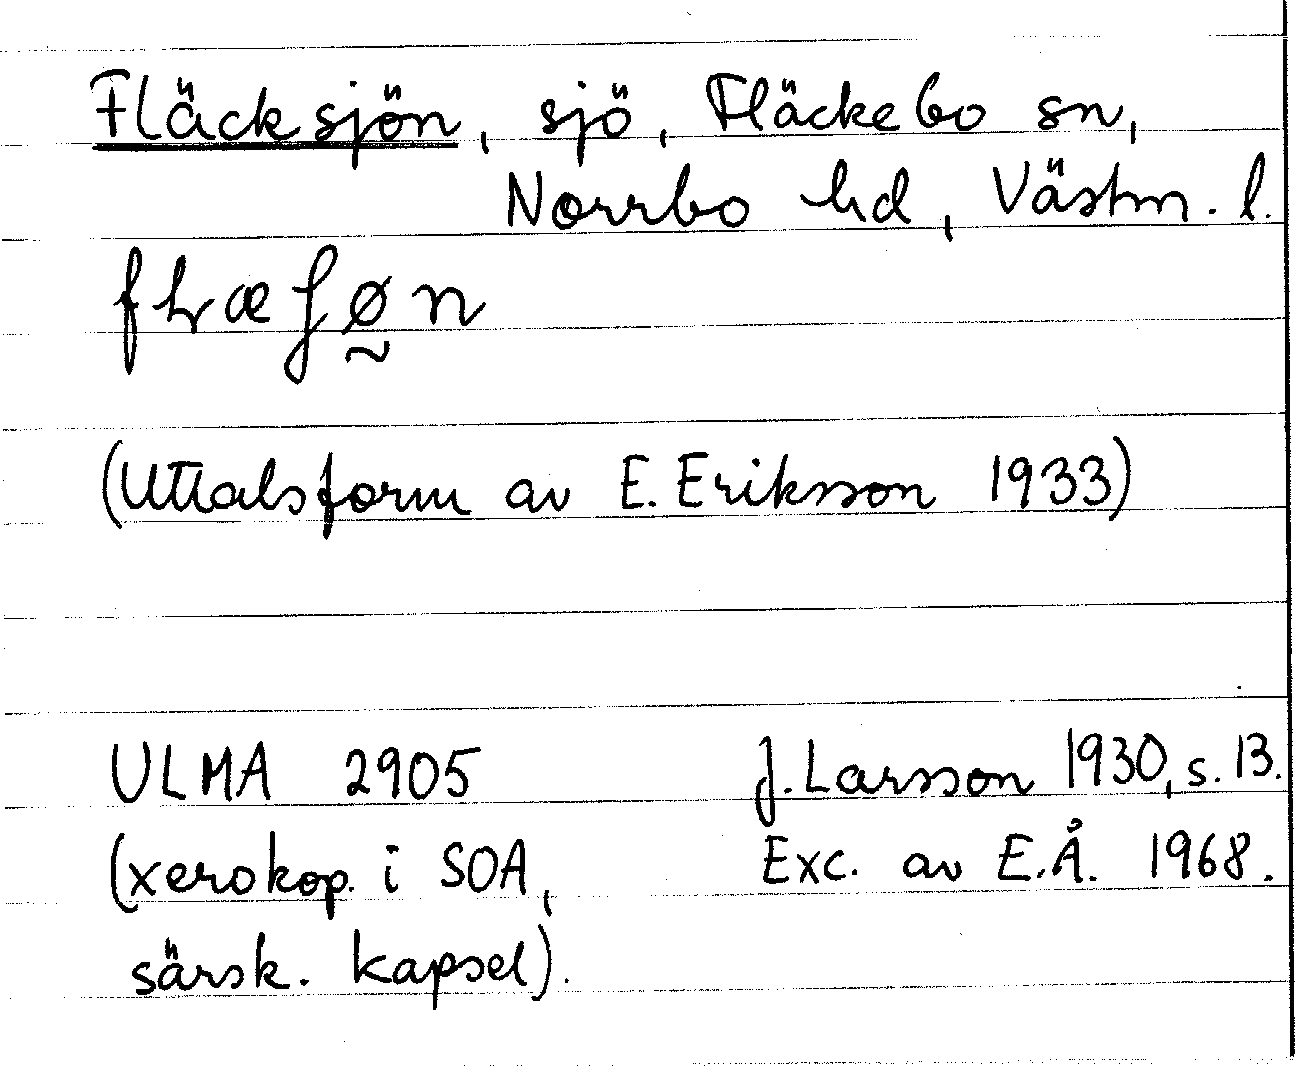 Fläcksjön, sjö, Fläckebo sn,
Norrbo hd, Västm. l.
(Uttalsform av E. Eriksson 1933)
ULMA 2905 J. Larsson 1930, s. 13.
(xerokop. i SOA, Exc. av E.Å. 1968.
särsk. kapsel).